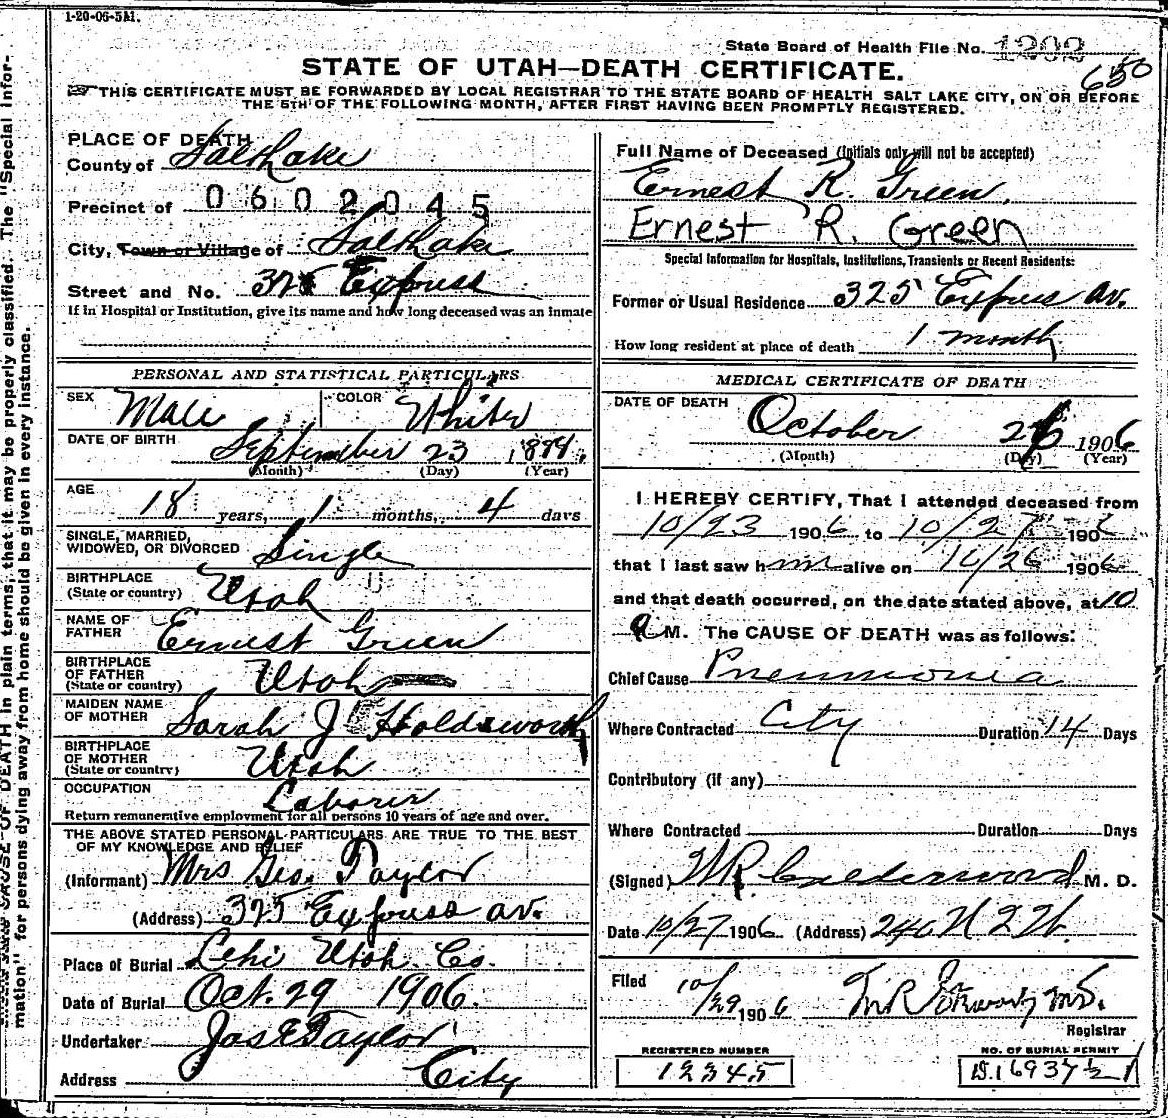 1-20-06-5M.
State Board of Health File No. 1202
STATE OF UTAH—DEATH CERTIFICATE.
650
THIS CERTIFICATE MUST BE FORWARDED BY LOCAL REGISTRAR TO THE STATE BOARD OF HEALTH SALT LAKE CITY, ON OR BEFORE
THE 5TH OF THE FOLLOWING MONTH, AFTER FIRST HAVING BEEN PROMPTLY REGISTERED.
PLACE OF DEATH
County of Salt Lake
Precinct of 0602045
City, Town or Village of Salt Lake
Street and No. 325 Express
If in Hospital or Institution, give its name and how long deceased was an inmate
Full Name of Deceased (Initials only will not be accepted)
Ernest R. Green.
Ernest R. Green
Special Information for Hospitals, Institutions, Transients or Recent Residents:
Former or Usual Residence 325 Express Av.
How long resident at place of death 1 month
PERSONAL AND STATISTICAL PARTICULARS
SEX Male COLOR White
DATE OF BIRTH September 23
(Month) (Day) (Year)
AGE 18 years, 1 months, 4 days
SINGLE, MARRIED,
WIDOWED, OR DIVORCED Single
BIRTHPLACE
(State or country) Utah
NAME OF
FATHER Ernest Green
BIRTHPLACE
OF FATHER
(State or country) Utah
MAIDEN NAME
OF MOTHER Sarah J Holdsworth
BIRTHPLACE
OF MOTHER
(State or country) Utah
OCCUPATION Laborer
Return remunerative employment for all persons 10 years of age and over.
THE ABOVE STATED PERSONAL PARTICULARS ARE TRUE TO THE BEST
OF MY KNOWLEDGE AND BELIEF
(Informant) Mrs Geo. Taylor
(Address) 325 Express av.
Place of Burial Lehi Utah Co.
Date of Burial Oct. 29 1906.
Undertaker Jas E Taylor
Address City
MEDICAL CERTIFICATE OF DEATH
DATE OF DEATH October 1906
(Month) (Day) (Year)
I HEREBY CERTIFY, That I attended deceased from
10/23 1906 to 10/27 1906
that I last saw him alive on 10/26 1906
and that death occurred, on the date stated above, at 10
a M. The CAUSE OF DEATH was as follows:
Chief Cause Pneumonia
Where Contracted City Duration 14 Days
Contributory (if any)
Where Contracted Duration Days
(Signed) W R Calderwood M. D.
Date 10/27 1906 (Address) 246 N 2 W.
Filed 10/29 1906 M.D.
Registrar
REGISTERED NUMBER
12345
NO. OF BURIAL PERMIT
D.16937½
CAUSE OF DEATH in plain terms, that it may be properly classified. The "Special Infor-
mation" for persons dying away from home should be given in every instance.